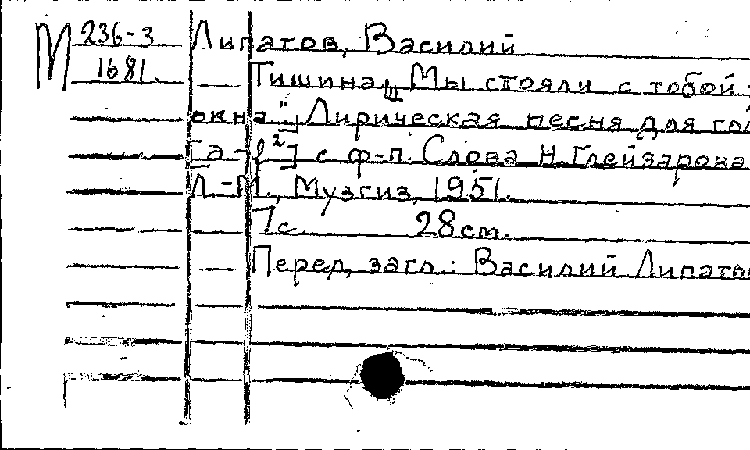 М 236-3 Липатов, Василий
1681. Тишина [„Мы стояли с тобой у
окна"]. Лирическая песня для гол
[a-f²] с ф-п. Слова Н. Глейзарова
Л.-М., Музгиз, 1951.
7с. 28см.
Перед загл.: Василий Липатов